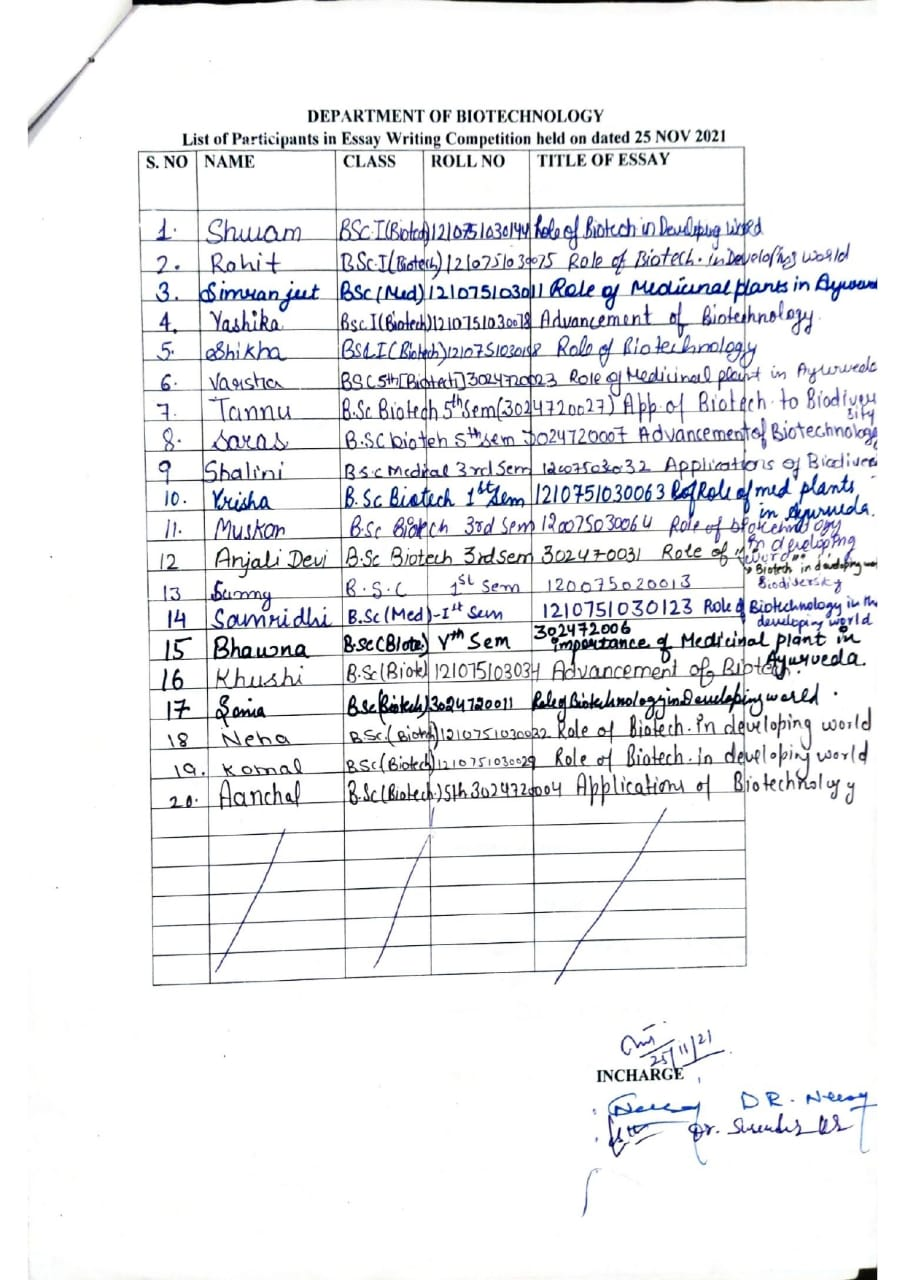 DEPARTMENT OF BIOTECHNOLOGY
List of Participants in Essay Writing Competition held on dated 25 NOV 2021
S. NO NAME CLASS ROLL NO TITLE OF ESSAY
1. Shuvam BSc.I(Biotech) 1210751030144 Role of Biotech in Developing World
2. Rohit B.Sc.I(Biotech) 1210751030075 Role of Biotech. in Developing world
3. Simran jeet BSc (Med) 121075103011 Role of Medicinal plants in
4. Yashika B.sc I(Biotech) 1210751030078 Advancement of Biotechnology.
5. Shikha BSc I(Biotech) Role of Biotechnology
6. BSC 5th [Biotech] 3024720023 Role of Medicinal plant in Ayurveda
7. Tannu B.Sc Biotech 5th Sem (3024720027) App. of Biotech. to Biodiver
sity
8. Saras B.SC bioteh 5th sem 3024720007 Advancement of Biotechnology
9 Shalini B.s.c Medical 3rd Sem 12007503032 Applications of
10. Krisha B.Sc Biotech 1st Sem 1210751030063 Role of med plants
in Ayurveda.
11. Muskan B.Sc Biotech 3rd sem 120075030064 Role of biotechnology
in developing
12 Anjali Devi B.Sc Biotech 3rd Sem 302470031 Role of
Biotech in developing
13 Sunny B.S.C 1st Sem 120075020013
14 Samridhi B.Sc (Med)-Ist Sem 1210751030123 Role of Biotechnology in the
developing world
15 Bhawna B.Sc (Biote) Vth Sem 302472006
importance of Medicinal plant in
Ayurveda.
16 Khushi B.Sc (Biote) 121075103034 Advancement of Biotech.
17 Sonia B.Sc(Biotech) 3024720011 Role of Biotechnology in Developing world.
18 Neha B.Sc.(Biotech) 1210751030032 Role of Biotech. in developing world
19. Komal B.Sc(Biotech) 1210751030029 Role of Biotech. in developing world
20. Aanchal B.Sc (Biotech.) 5th 3024720004 Applications of Biotechnology
25/11/21
INCHARGE
DR. Neeraj
Dr.